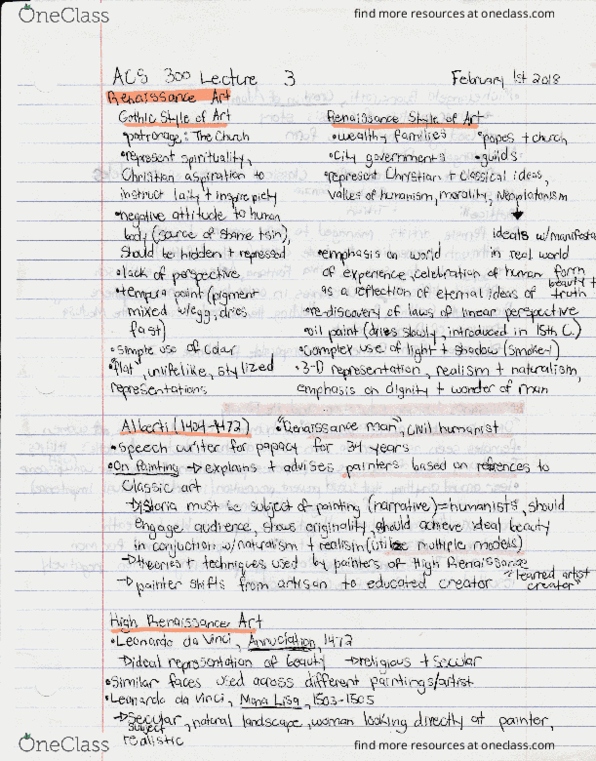 OneClass
find more resources at oneclass.com
ACS 300 Lecture 3 February 1st 2018
Renaissance Art
Gothic Style of Art
•patronage: The Church
•represent spirituality,
Christian aspiration to
instruct laity + inspire piety
•negative attitude to human
body (source of shame + sin),
should be hidden + repressed
•lack of perspective,
•tempura paint (pigment
mixed w/egg, dries
fast)
•simple use of color
•"flat", unlifelike, stylized
representations
Renaissance Style of Art
•wealthy families •popes + church
•City governments •guilds
•represent Christian + classical ideas,
values of humanism, morality, Neoplatonism
ideals w/manifesta
in real world
•emphasis on world
of experience, celebration of human form
as a reflection of eternal ideas of beauty + truth
•re-discovery of laws of linear perspective
•oil paint (dries slowly, introduced in 15th C.)
•complex use of light + shadow (smokey)
•3-D representation, realism + naturalism,
emphasis on dignity + wonder of man
Alberti (1404-1472) •"Renaissance man", civil humanist
•speech writer for papacy for 34 years
•On Painting → explains + advises painters based on references to
Classic art
→Istoria must be subject of painting (narrative) = humanists, should
engage audience, shows originality, should achieve ideal beauty
in conjuction w/naturalism + realism (utilize multiple models)
→theories + techniques used by painters of High Renaissance
→painter shifts from artisan to educated creator "learned artist
creator"
High Renaissance Art
•Leonardo da Vinci, Annuciation, 1472
→ideal representation of beauty →religious + secular
•Similar faces used across different paintings/artist
•Leonardo da Vinci, Mona Lisa, 1503-1505
→Secular subject, natural landscape, woman looking directly at painter,
realistic
OneClass
find more resources at oneclass.com